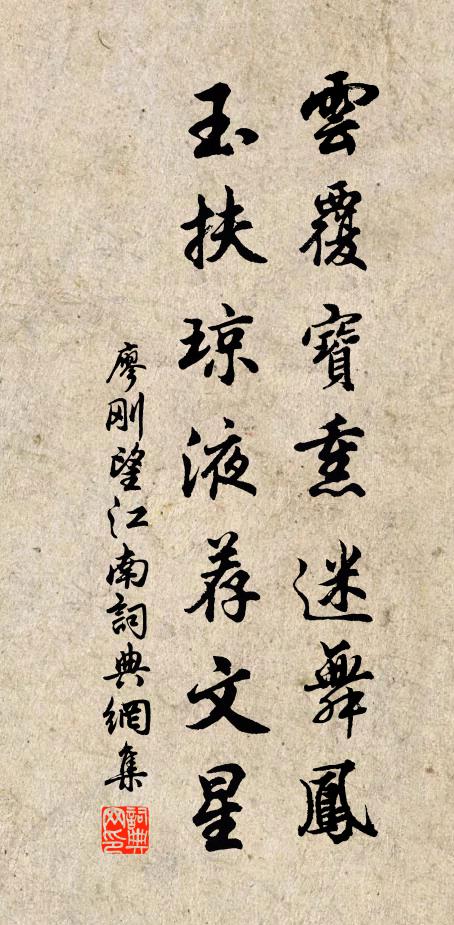 雲覆寶熏迷舞鳳
玉扶琼液荐文星
廖刚望江南詞典網集
詞典网印